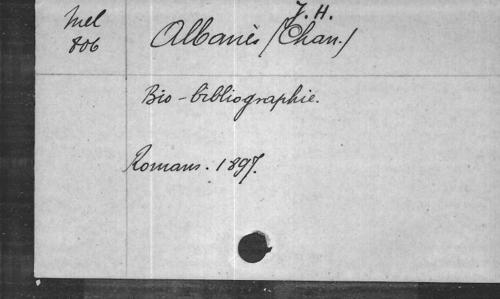 Mel
806
J. H.
Albanès (Chan.)
Bio-bibliographie.
Romans. 1897.